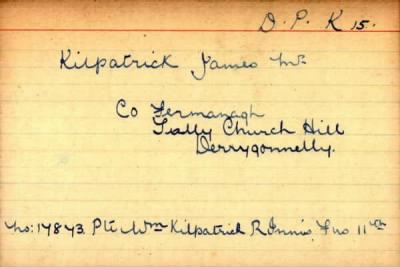 D. P. K 15.
Kilpatrick James Mr.
Co Fermanagh
Tully Church Hill
Derrygonnelly.
No: 17873 Pte Wm Kilpatrick R Innis, Fus 11th